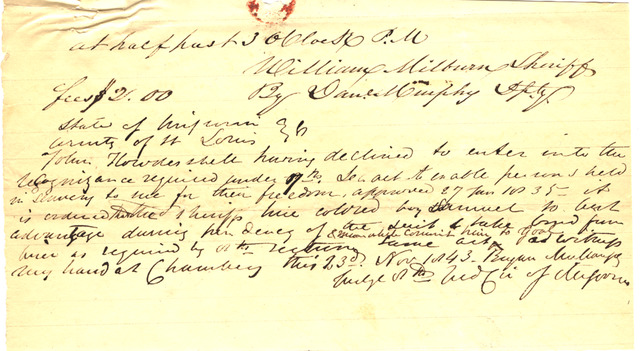 at half past 3 O Clock P.M
William Milburn Sheriff
fees $2.00 By Danl Murphy Dpty.
State of Missouri
County of St Louis
John Howdeshell having declined to enter into the
recognizance required under 9th Sec act to enable persons held
in slavery to sue for their freedom approved 27 Jan 1835 it
is ordered that the sheriff hire colored boy Samuel to best
advantage during pendency of the suit & take bond from
& meanwhile commit him to goal
hirer as required by section same act witness
my hand at Chambers this 23d Nov 1843. Bryan Mullanphy
Judge 8th Jud Cir of Missouri